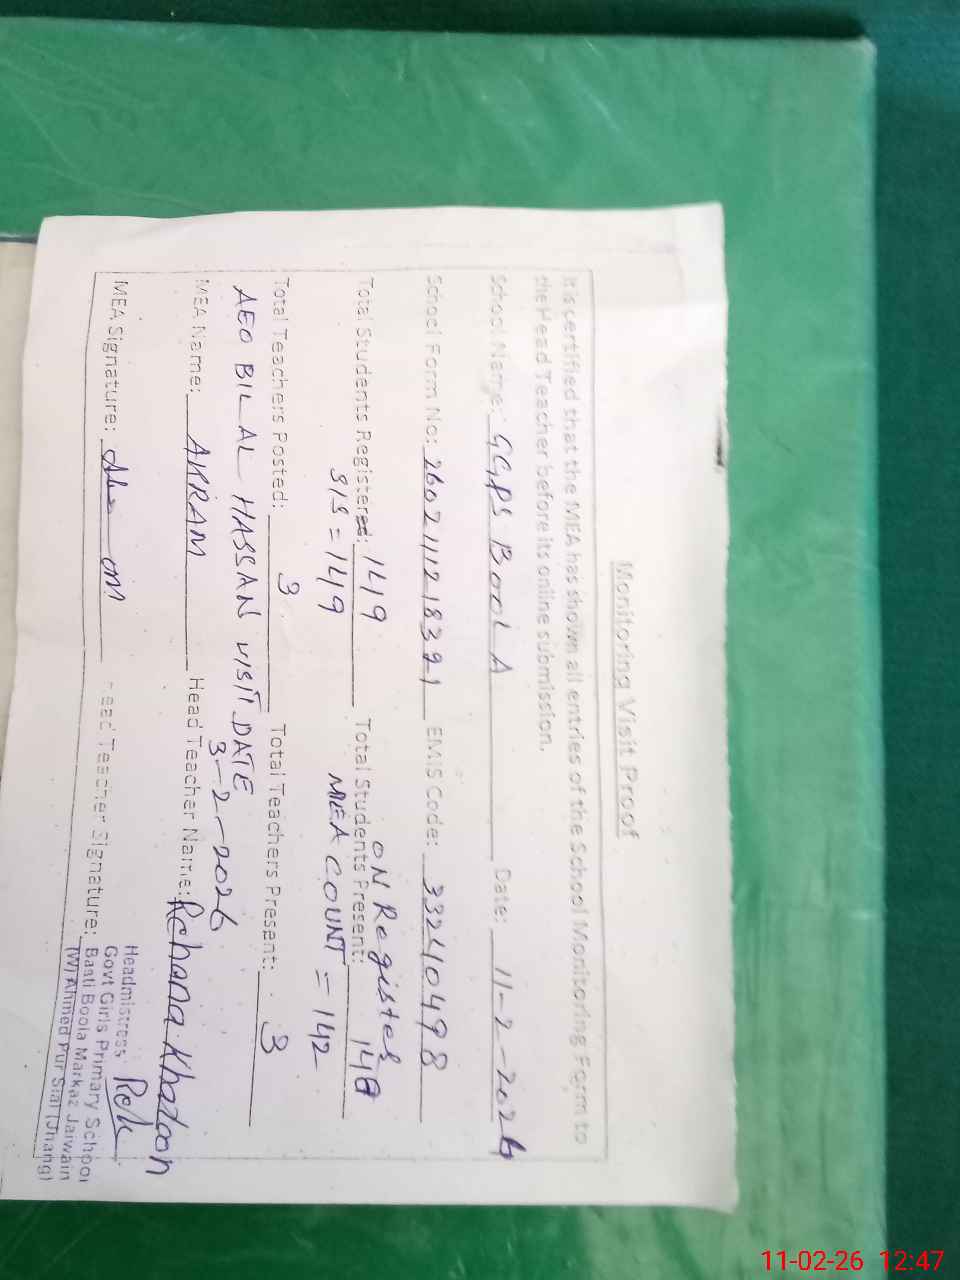 Monitoring Visit Proof
It is certified that the MEA has shown all entries of the School Monitoring Form to
the Head Teacher before its online submission.
School Name: GGPS BOOLA Date: 11-2-2026
School Form No: EMIS Code: 33240498
ON Register
Total Students Registered: 149 Total Students Present:
SIS = 149 MEA COUNT = 142
Total Teachers Posted: 3 Total Teachers Present: 3
AEO BILAL HASSAN VISIT DATE
3-2-2026
MEA Name: AKRAM Head Teacher Name: Rehana Khatoon
MEA Signature: Head Teacher Signature:
Headmistress
Govt Girls Primary School
Basti Boola Markaz Jaiwain
(W) Ahmed Pur Sial (Jhang)
11-02-26 12:47